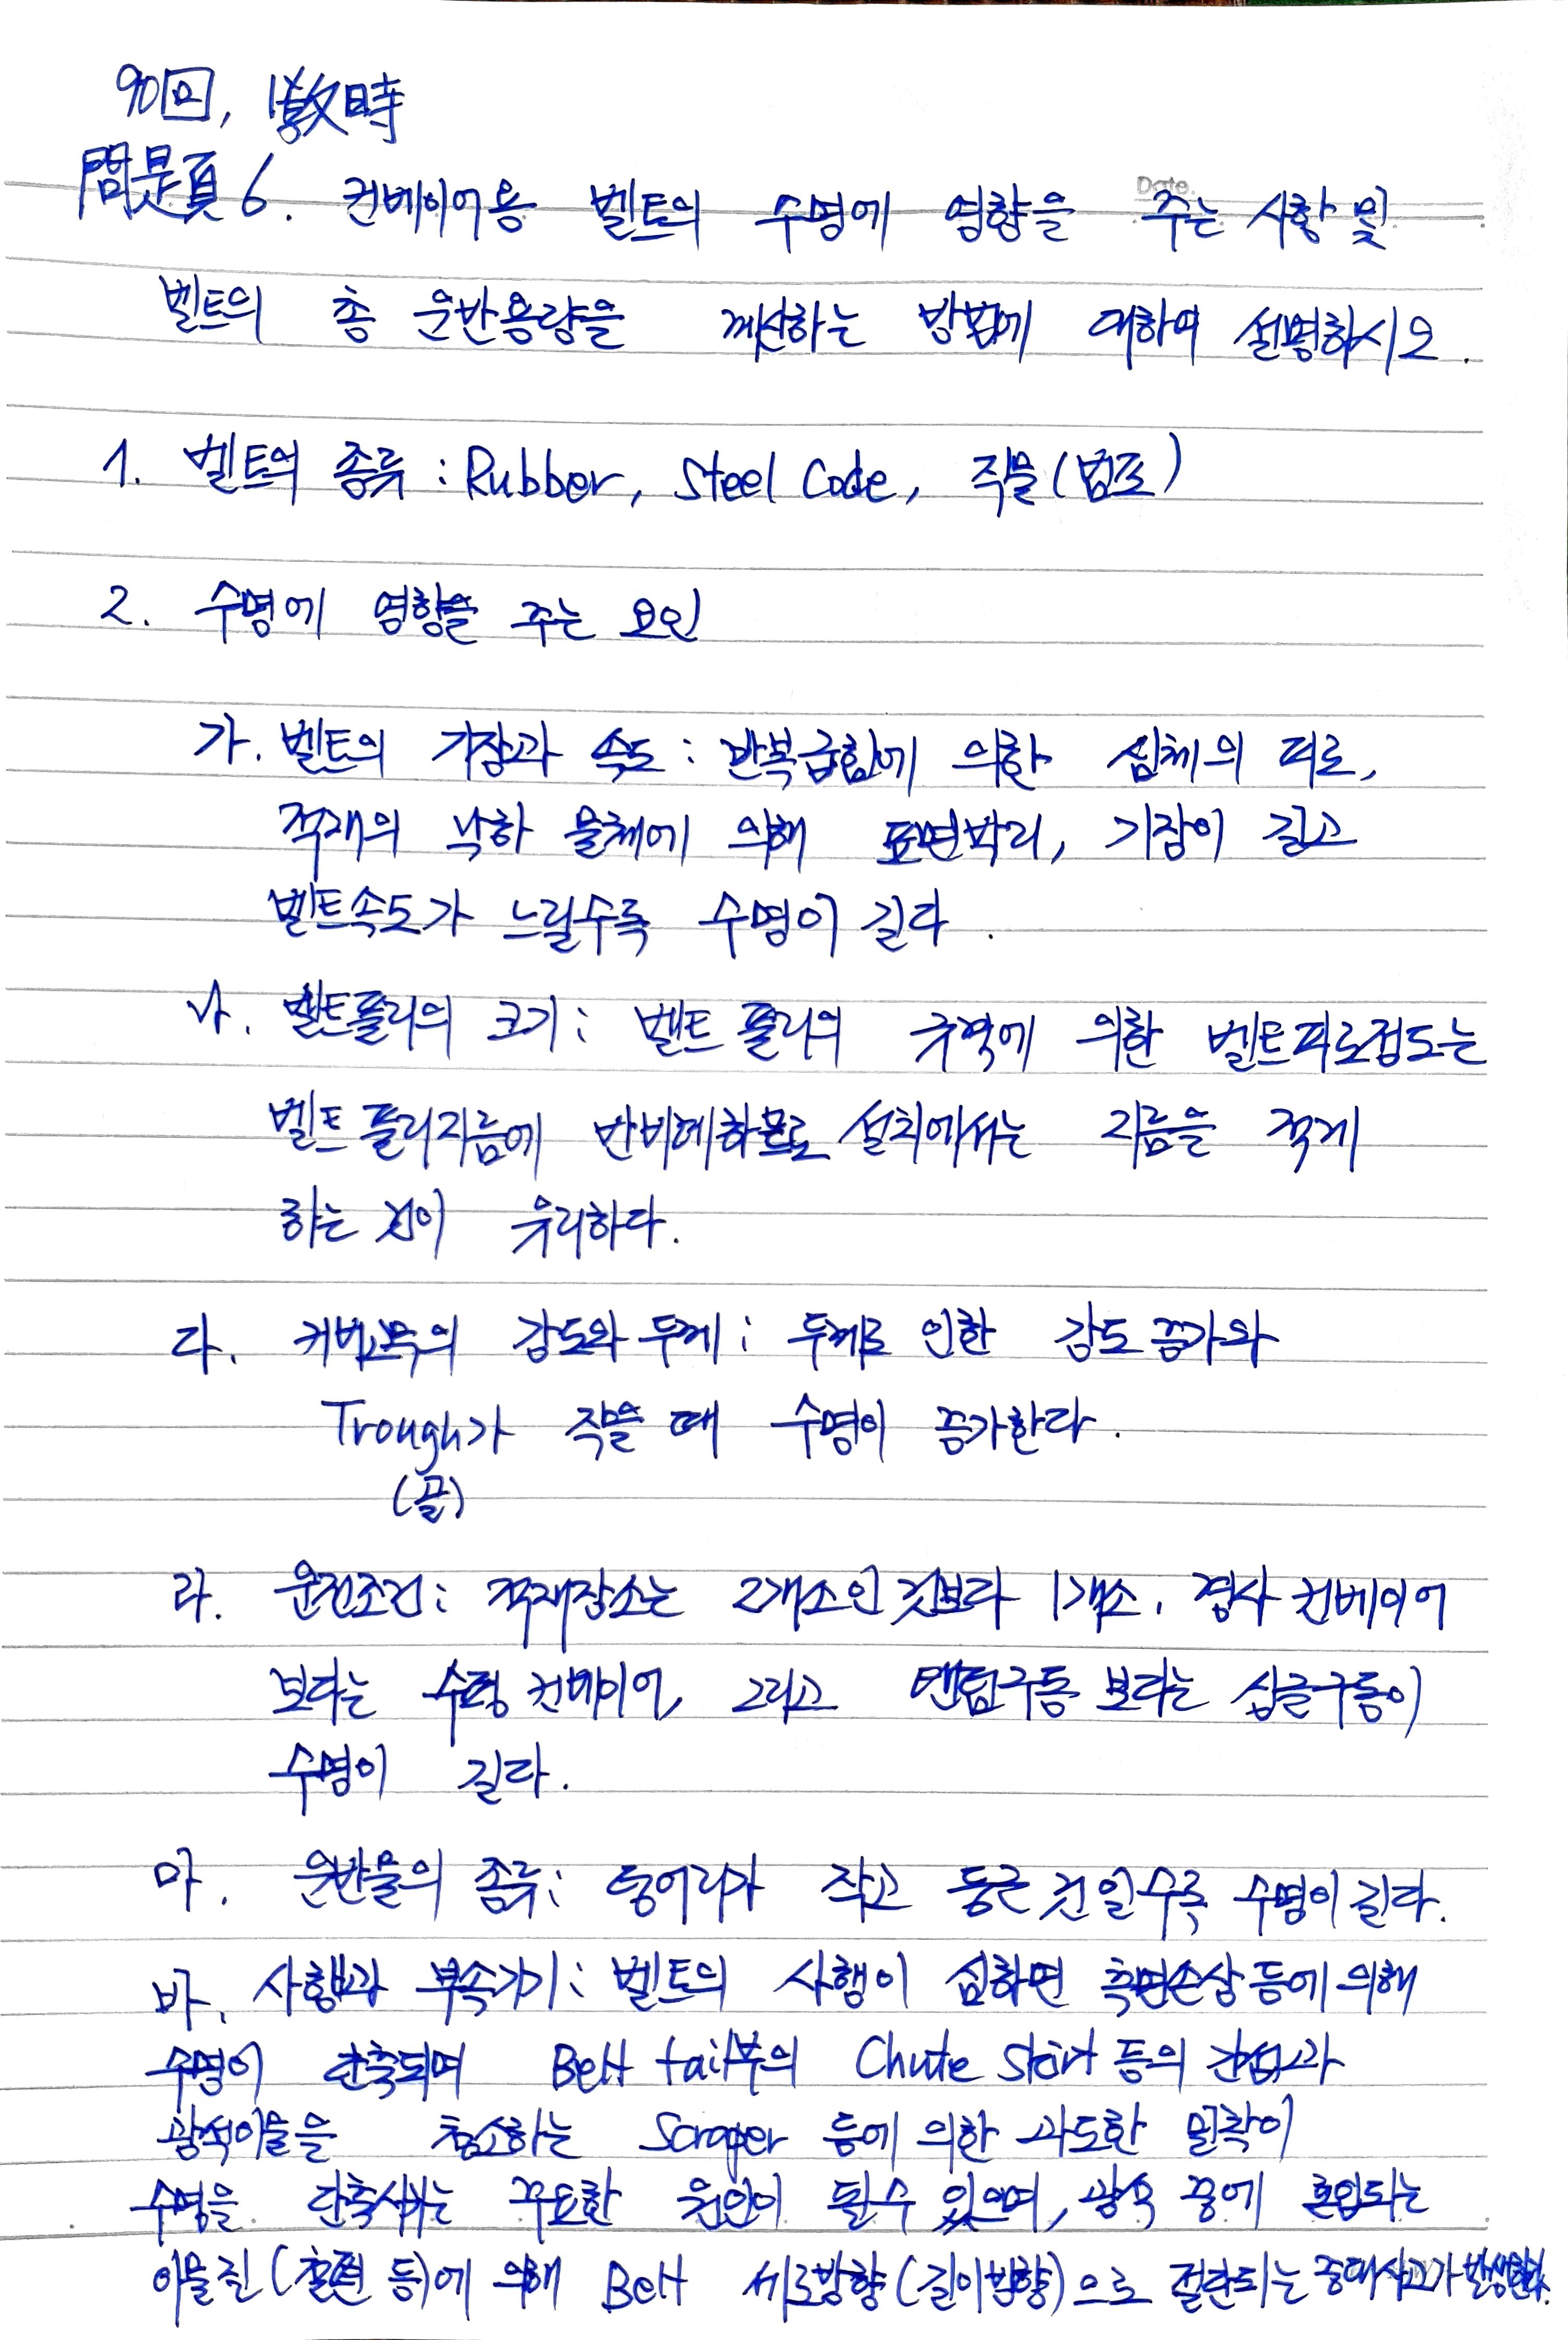 90回, 1敎時
Date.
問題 6. 컨베이어용 벨트의 수명에 영향을 주는 사항 및
벨트의 총 운반용량을 계산하는 방법에 대하여 설명하시오.
1. 벨트의 종류 : Rubber, Steel Code, 직물(범포)
2. 수명에 영향을 주는 요인
가. 벨트의 기장과 속도 : 반복굽힘에 의한 심체의 피로,
적재의 낙하 물체에 의해 표면박리, 기장이 길고
벨트속도가 느릴수록 수명이 길다.
나. 벨트풀리의 크기 : 벨트 풀리의 굴곡에 의한 벨트피로정도는
벨트 풀리지름에 반비례하므로 설치에서는 지름을 적게
하는 것이 유리하다.
다. 커버고무의 강도와 두께 : 두께로 인한 강도 증가와
Trough가 작을 때 수명이 증가한다.
(골)
라. 운전조건 : 적재장소는 2개소인 것보다 1개소, 경사 컨베이어
보다는 수평 컨베이어, 그리고 탠덤구동 보다는 싱글구동이
수명이 길다.
마. 운반물의 종류 : 덩어리가 작고 둥근 것일수록 수명이 길다.
바. 사행과 부속기기 : 벨트의 사행이 심하면 측면손상 등에 의해
수명이 단축되며 Belt tail부의 Chute Skirt 등의 간섭과
광석이물을 청소하는 Scraper 등에 의한 과도한 밀착이
수명을 단축시키는 주요한 원인이 될수 있으며, 광석 중에 혼입되는
이물질(철편 등)에 의해 Belt 세로방향(길이방향)으로 절단되는 중대사고가 발생한다.